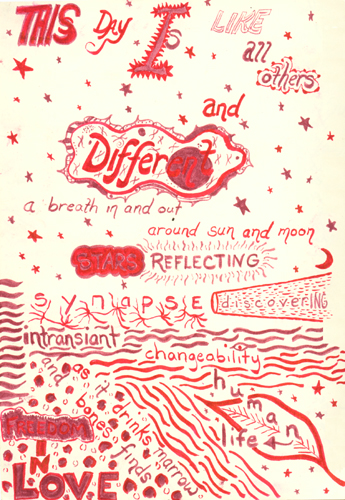 THIS Day Is LIKE
all
others
and
Different
a breath in and out
around sun and moon
STARS REFLECTING
synapse discoverING
intransiant
changeability
human
life
and as it drinks marrow
bones finds
FREEDOM
IN
LOVE